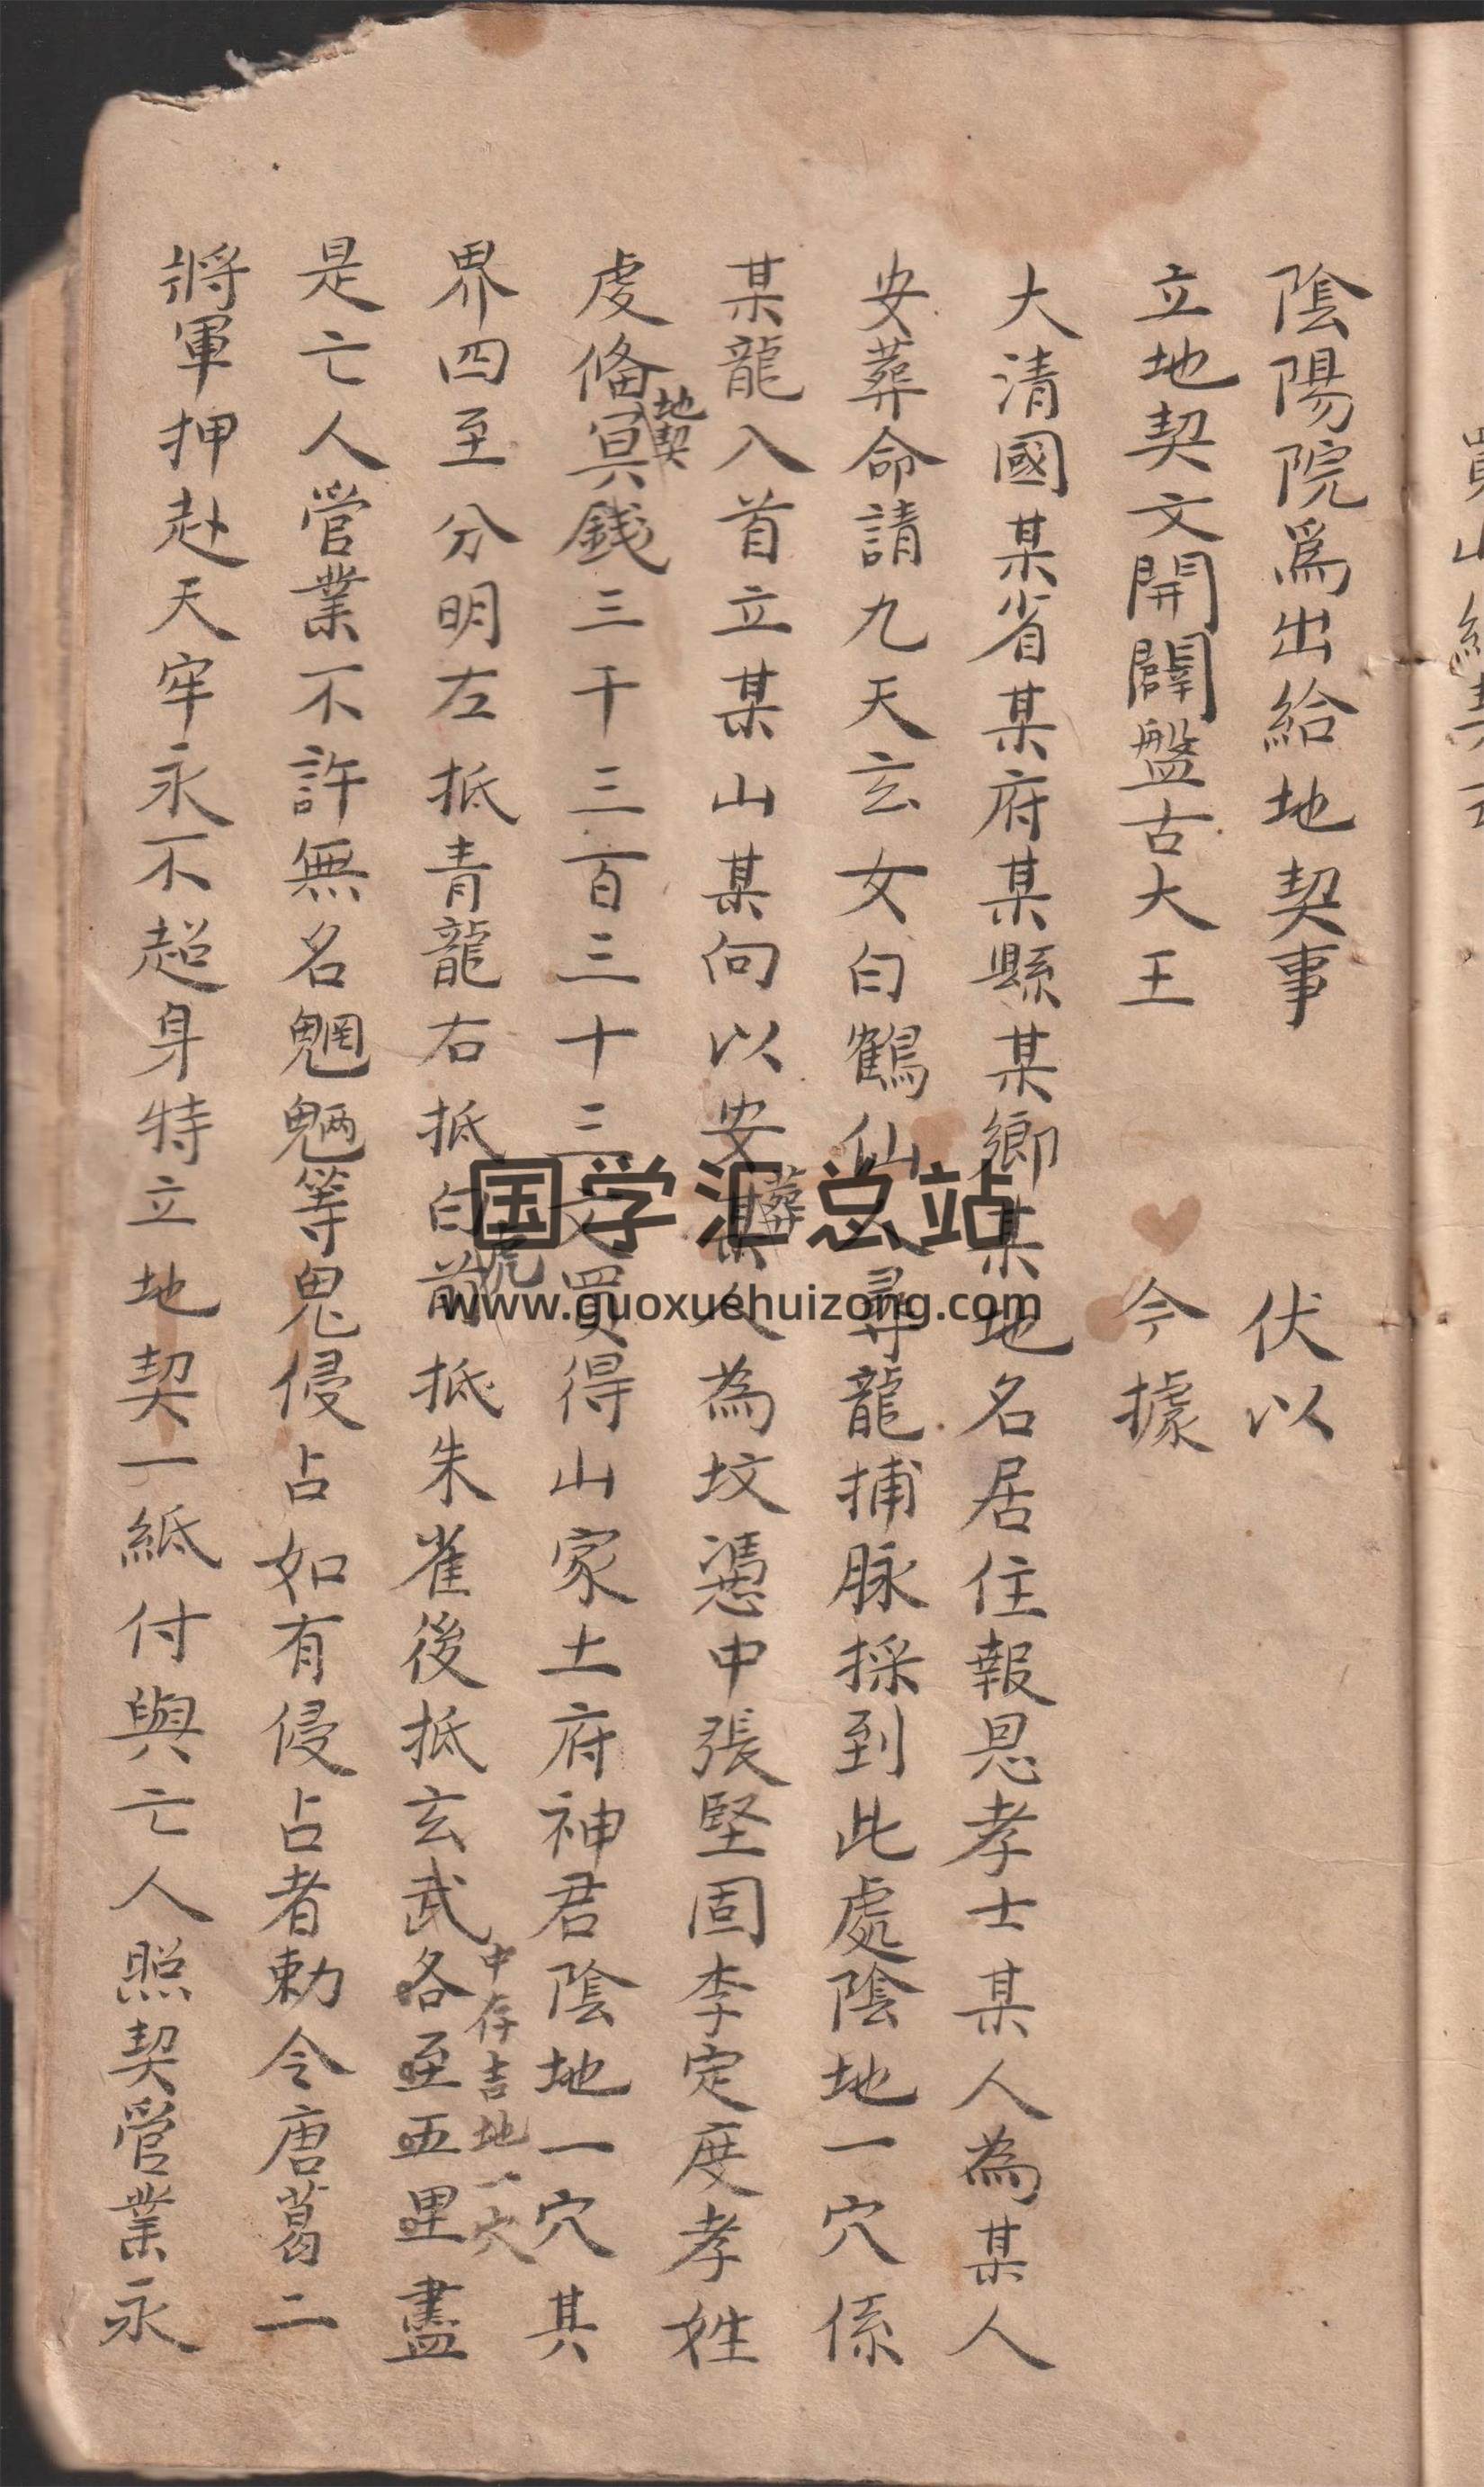 陰陽院爲出給地契事　伏以
立地契文開闢盤古大王　今據
大清國某省某府某縣某鄉某地名居住報恩孝士某人為某人
安葬命請九天玄女白鶴仙人尋龍捕脉採到此處陰地一穴係
某龍入首立某山某向以安葬某人為坟憑中張堅固李定度孝姓
虔俻冥錢三千三百三十三文買得山家土府神君陰地一穴其
地契
界四至分明左抵青龍右抵白虎前抵朱雀後抵玄武各至五里盡
中存吉地一穴
是亡人營業不許無名魍魎等鬼侵占如有侵占者勅令唐葛二
將軍押赴天牢永不超身特立地契一紙付與亡人照契營業永
国学汇总站
www.guoxuehuizong.com